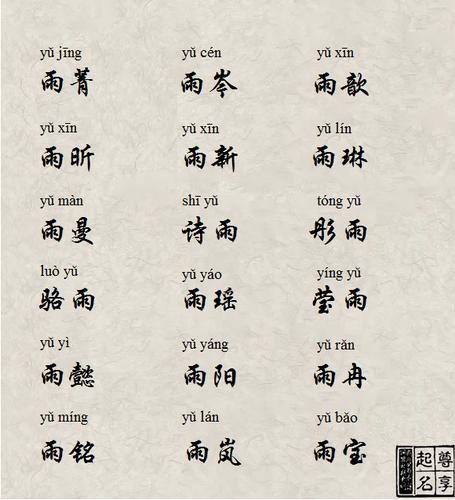 yǔ jīng yǔ cén yǔ xīn
雨菁 雨岑 雨歆
yǔ xīn yǔ xīn yǔ lín
雨昕 雨新 雨琳
yǔ màn shī yǔ tóng yǔ
雨曼 诗雨 彤雨
luò yǔ yǔ yáo yíng yǔ
骆雨 雨瑶 莹雨
yǔ yì yǔ yáng yǔ rǎn
雨懿 雨阳 雨冉
yǔ míng yǔ lán yǔ bǎo
雨铭 雨岚 雨宝
尊享
起名